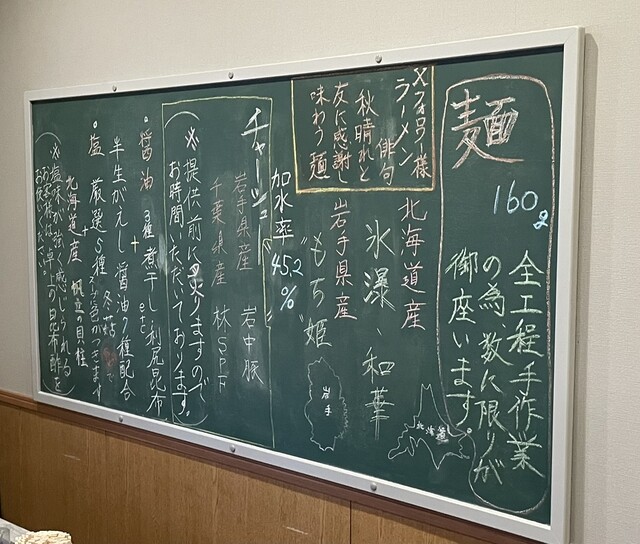 麺
160g
全工程手作業
の為、数に限りが
御座います。
Xフォロワー様
ラーメン俳句
秋晴れと
友に感謝し
味わう麺
北海道産
氷瀑、和華
岩手県産
"もち姫"
北海道
岩手
加水率
45.2
%
チャーシュー
岩手県産 岩中豚
千葉県産 林SPF
※提供前に
お時間いただいております。
・醤油 3種煮干し 利尻昆布
+ etc
半生がえし 醤油9種配合
・塩 厳選5種 冬菇
+
北海道産 帆立の貝柱
※塩味が強く感じられる
お客様は卓上の昆布酢を
お使いください。